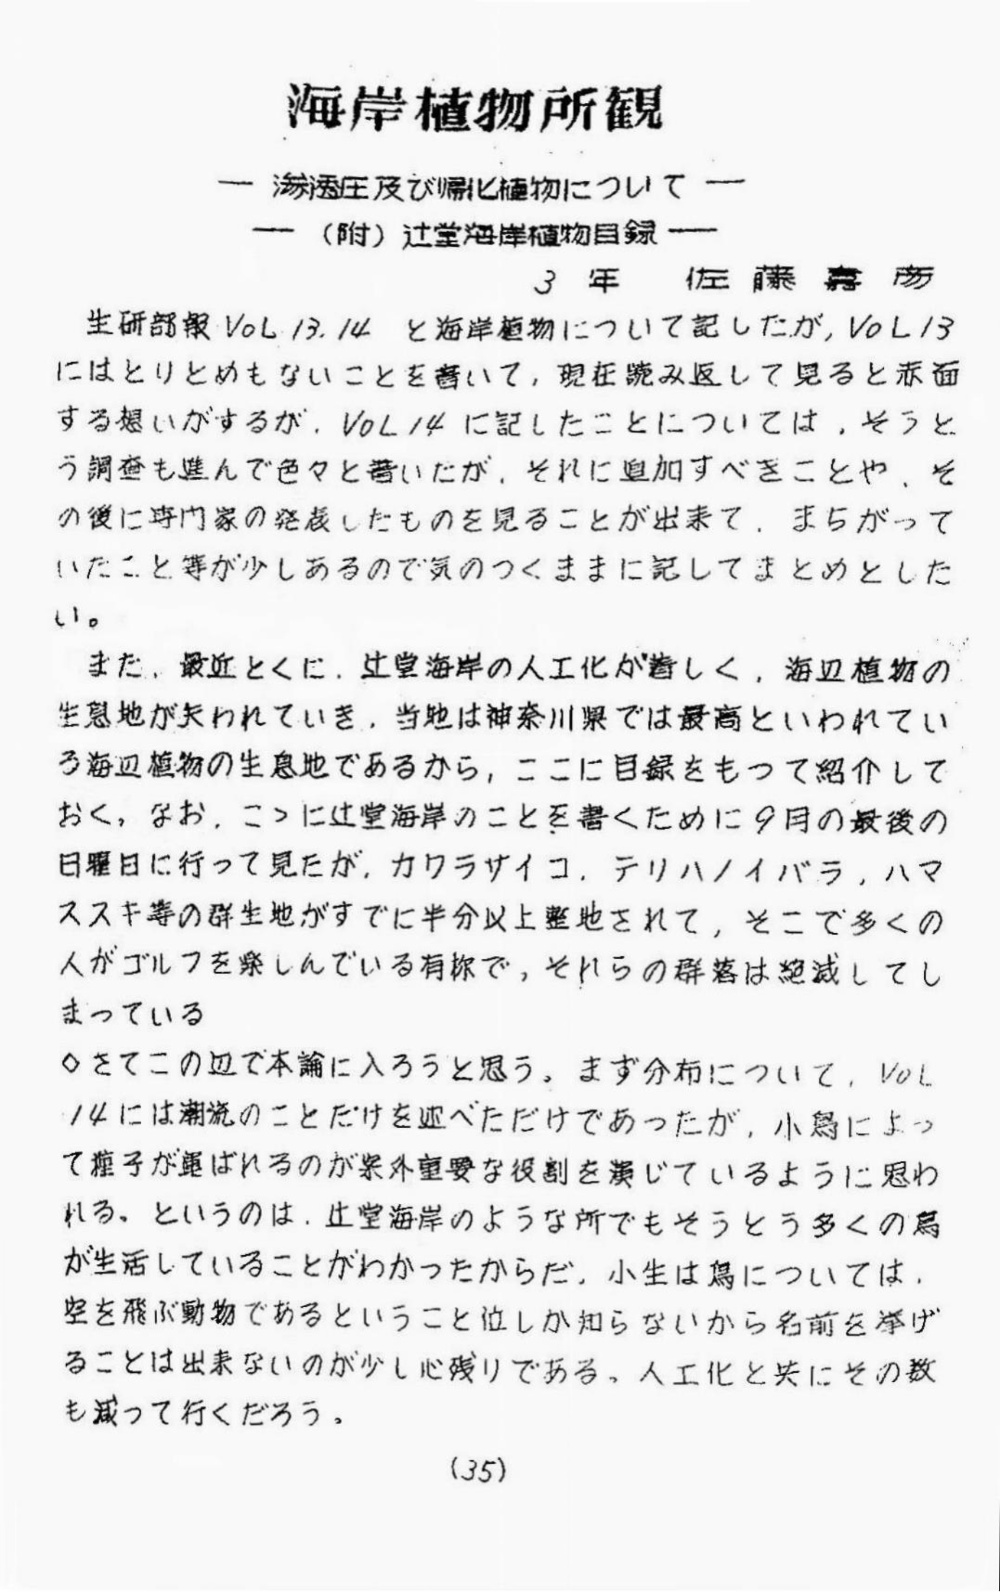 海岸植物所観
― 滲透圧及び帰化植物について ―
― （附）辻堂海岸植物目録 ―
3年 佐藤喜彦
生研部報 VOL 13. 14 と海岸植物について記したが, VOL 13
にはとりとめもないことを書いて, 現在読み返して見ると赤面
する想いがするが, VOL 14 に記したことについては, そうと
う調査も進んで色々と書いたが, それに追加すべきことや, そ
の後に専門家の発表したものを見ることが出来て, まちがって
いたこと等が少しあるので気のつくままに記してまとめとした
い。
また, 最近とくに, 辻堂海岸の人工化が著しく, 海辺植物の
生息地が失われていき, 当地は神奈川県では最高といわれてい
る海辺植物の生息地であるから, ここに目録をもつて紹介して
おく, なお, こゝに辻堂海岸のことを書くために9月の最後の
日曜日に行って見たが, カワラサイコ, テリハノイバラ, ハマ
ススキ等の群生地がすでに半分以上整地されて, そこで多くの
人がゴルフを楽しんでいる有様で, それらの群落は絶滅してし
まっている
◇さてこの辺で本論に入ろうと思う。まず分布について, VOL
14には潮流のことだけを述べただけであったが, 小鳥によっ
て種子が運ばれるのが案外重要な役割を演じているように思わ
れる。というのは, 辻堂海岸のような所でもそうとう多くの鳥
が生活していることがわかったからだ, 小生は鳥については,
空を飛ぶ動物であるということ位しか知らないから名前を挙げ
ることは出来ないのが少し心残りである。人工化と共にその数
も減って行くだろう。
(35)